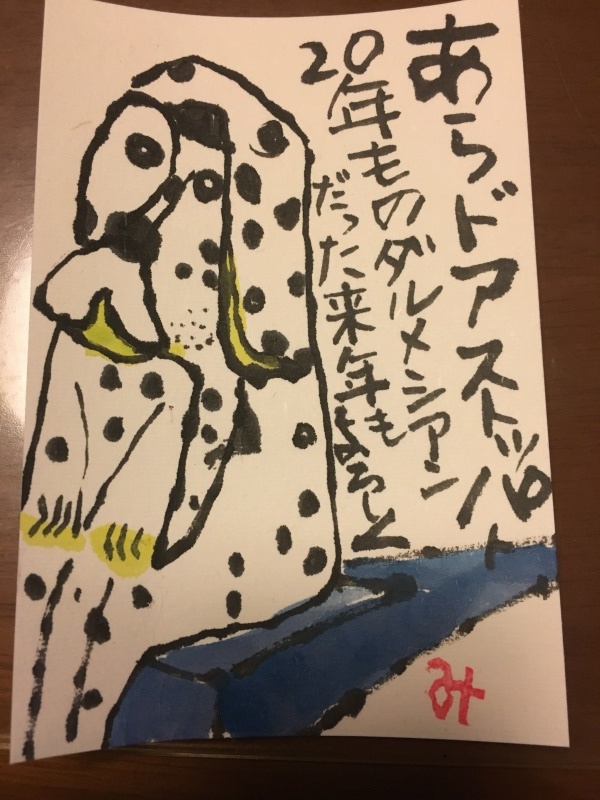 あらドアストッパー
20年ものダルメシアン
だった来年もよろしく
み